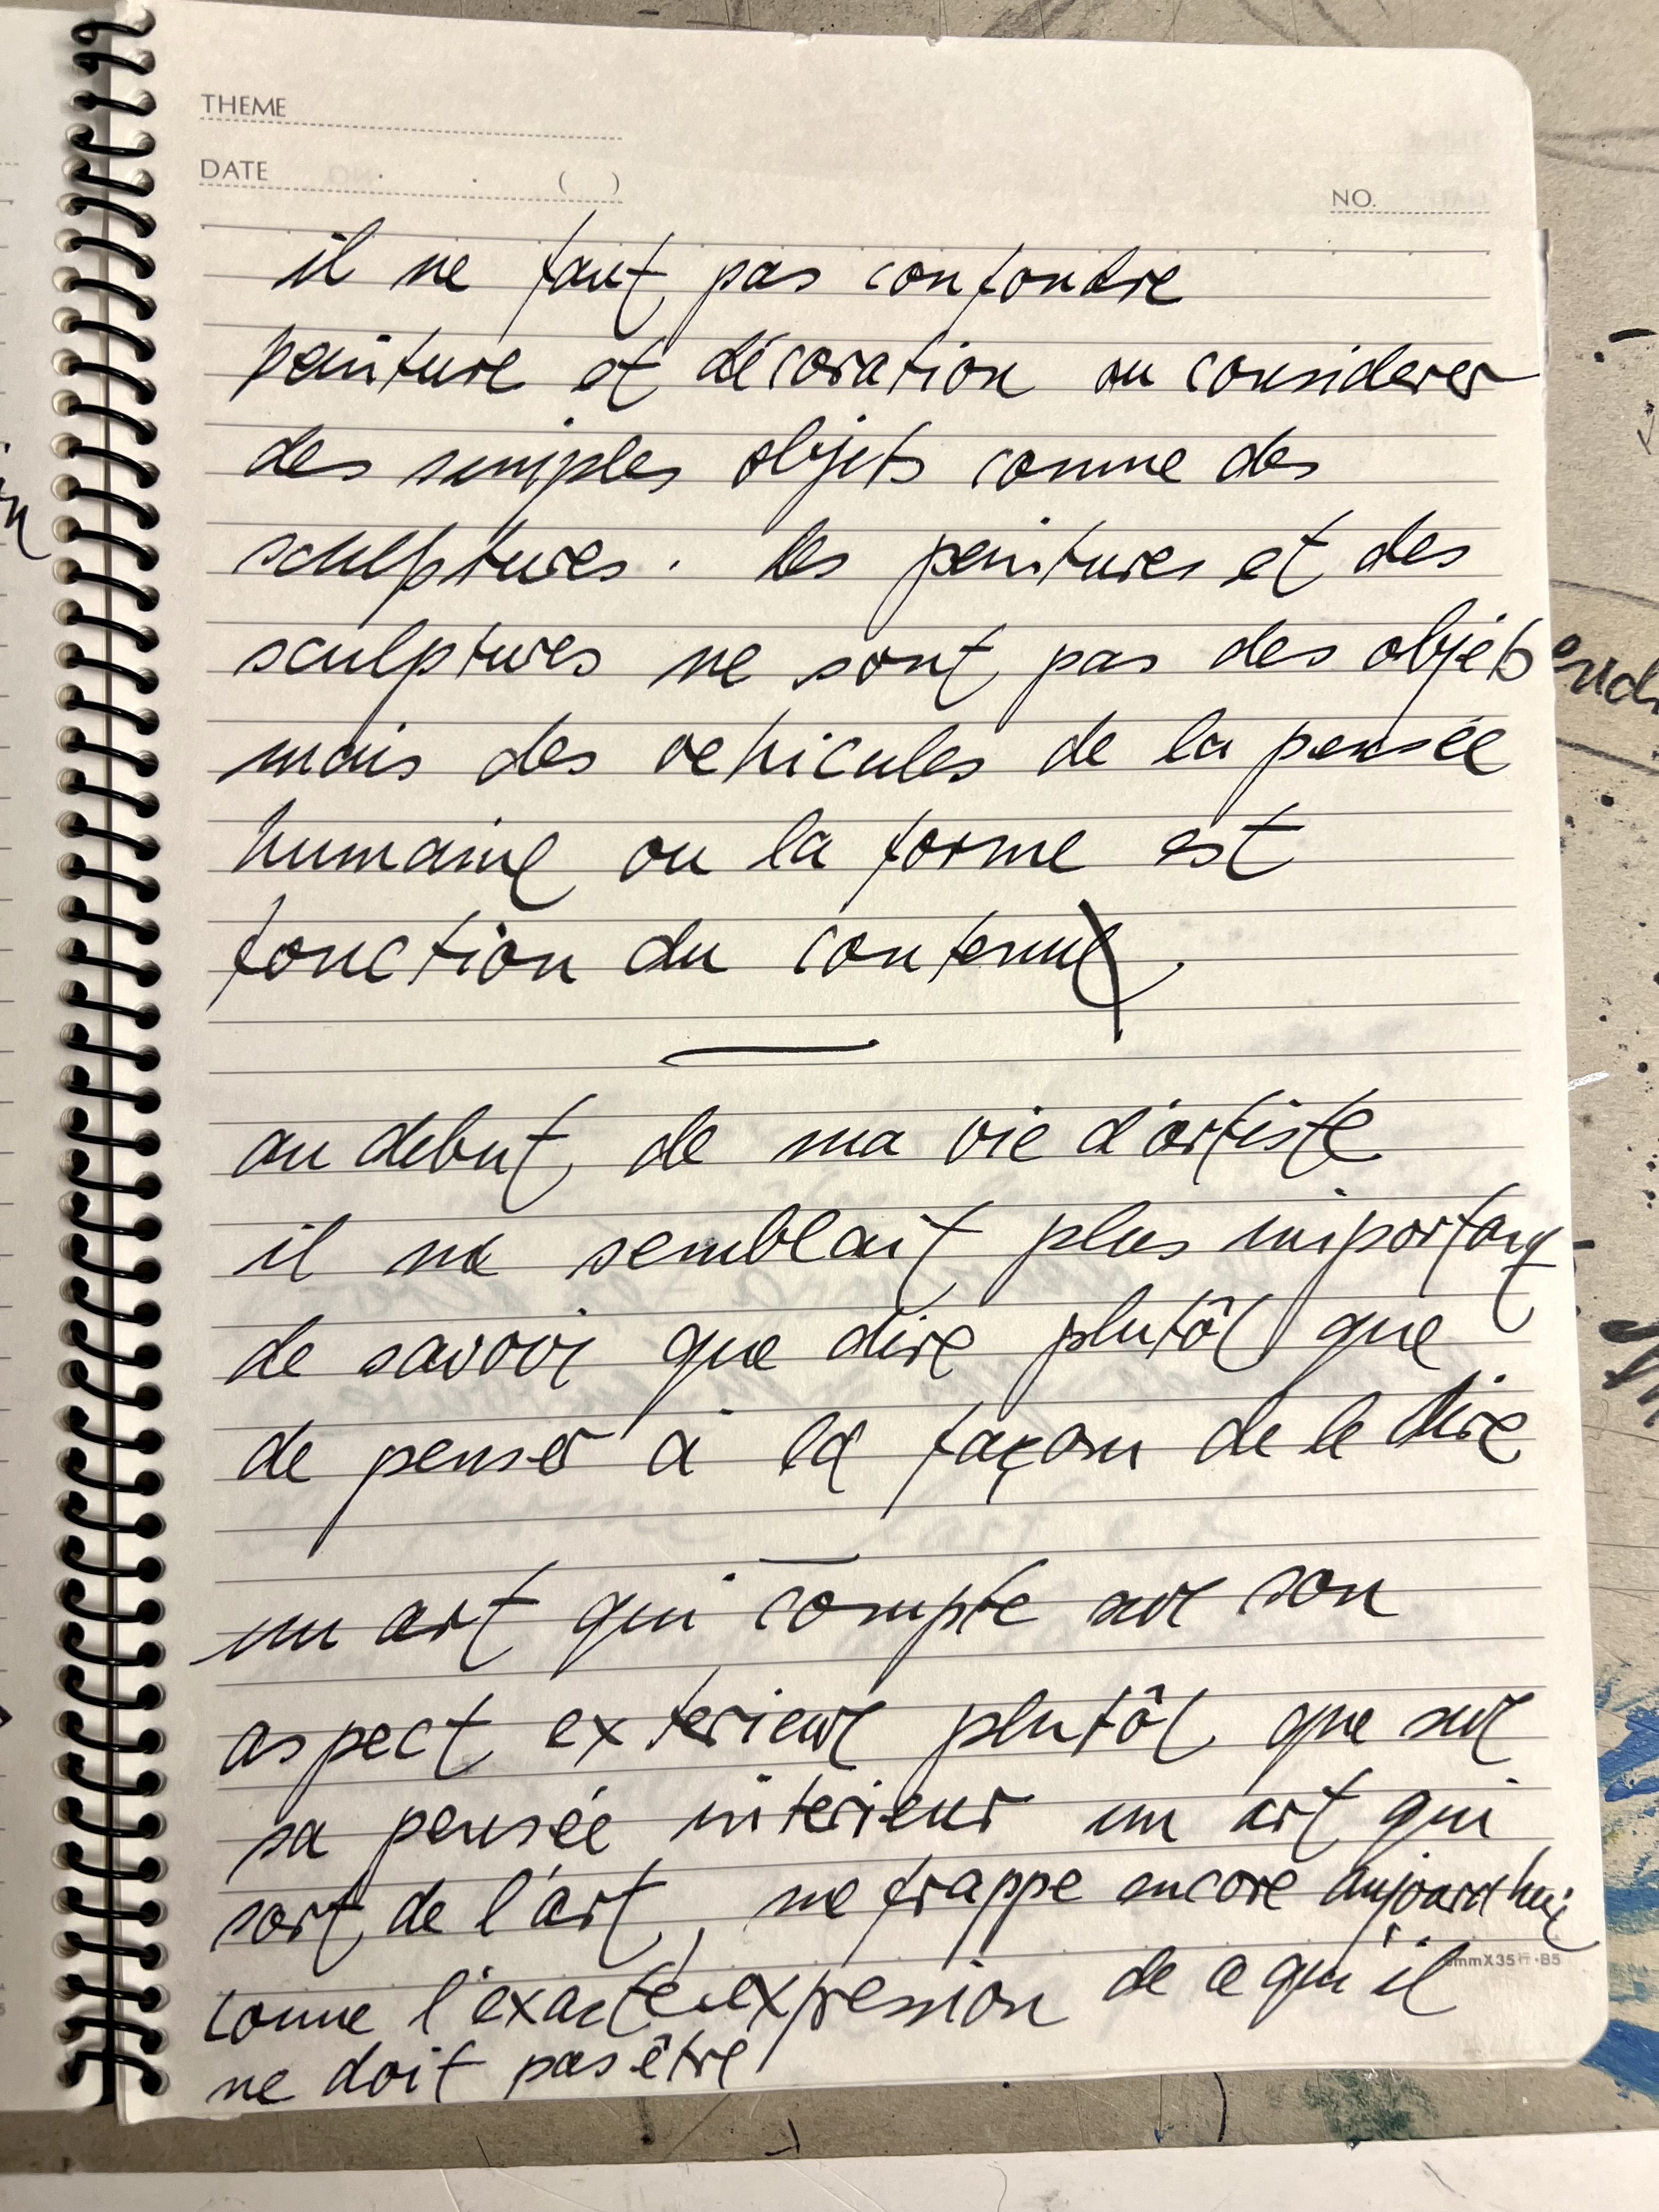 THEME
DATE . . ( )
NO.
il ne faut pas confondre
peinture et décoration ou considerer
des simples objets comme des
sculptures. les peintures et des
sculptures ne sont pas des objets
mais des vehicules de la pensée
humaine ou la forme est
fonction du contenu.
au debut de ma vie d'artiste
il me semblait plus important
de savoir que dire plutôt que
de penser à la façon de le dire
un art qui compte sur son
aspect exterieur plutôt que sur
sa pensée interieur un art qui
sort de l'art, me frappe encore aujourd'hui
comme l'exacte expression de ce qu'il
ne doit pas être
mmX35行·B5